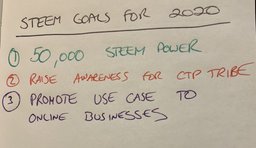 STEEM GOALS FOR 2020
① 50,000 STEEM POWER
② RAISE AWARENESS FOR CTP TRIBE
③ PROMOTE USE CASE TO
ONLINE BUSINESSES